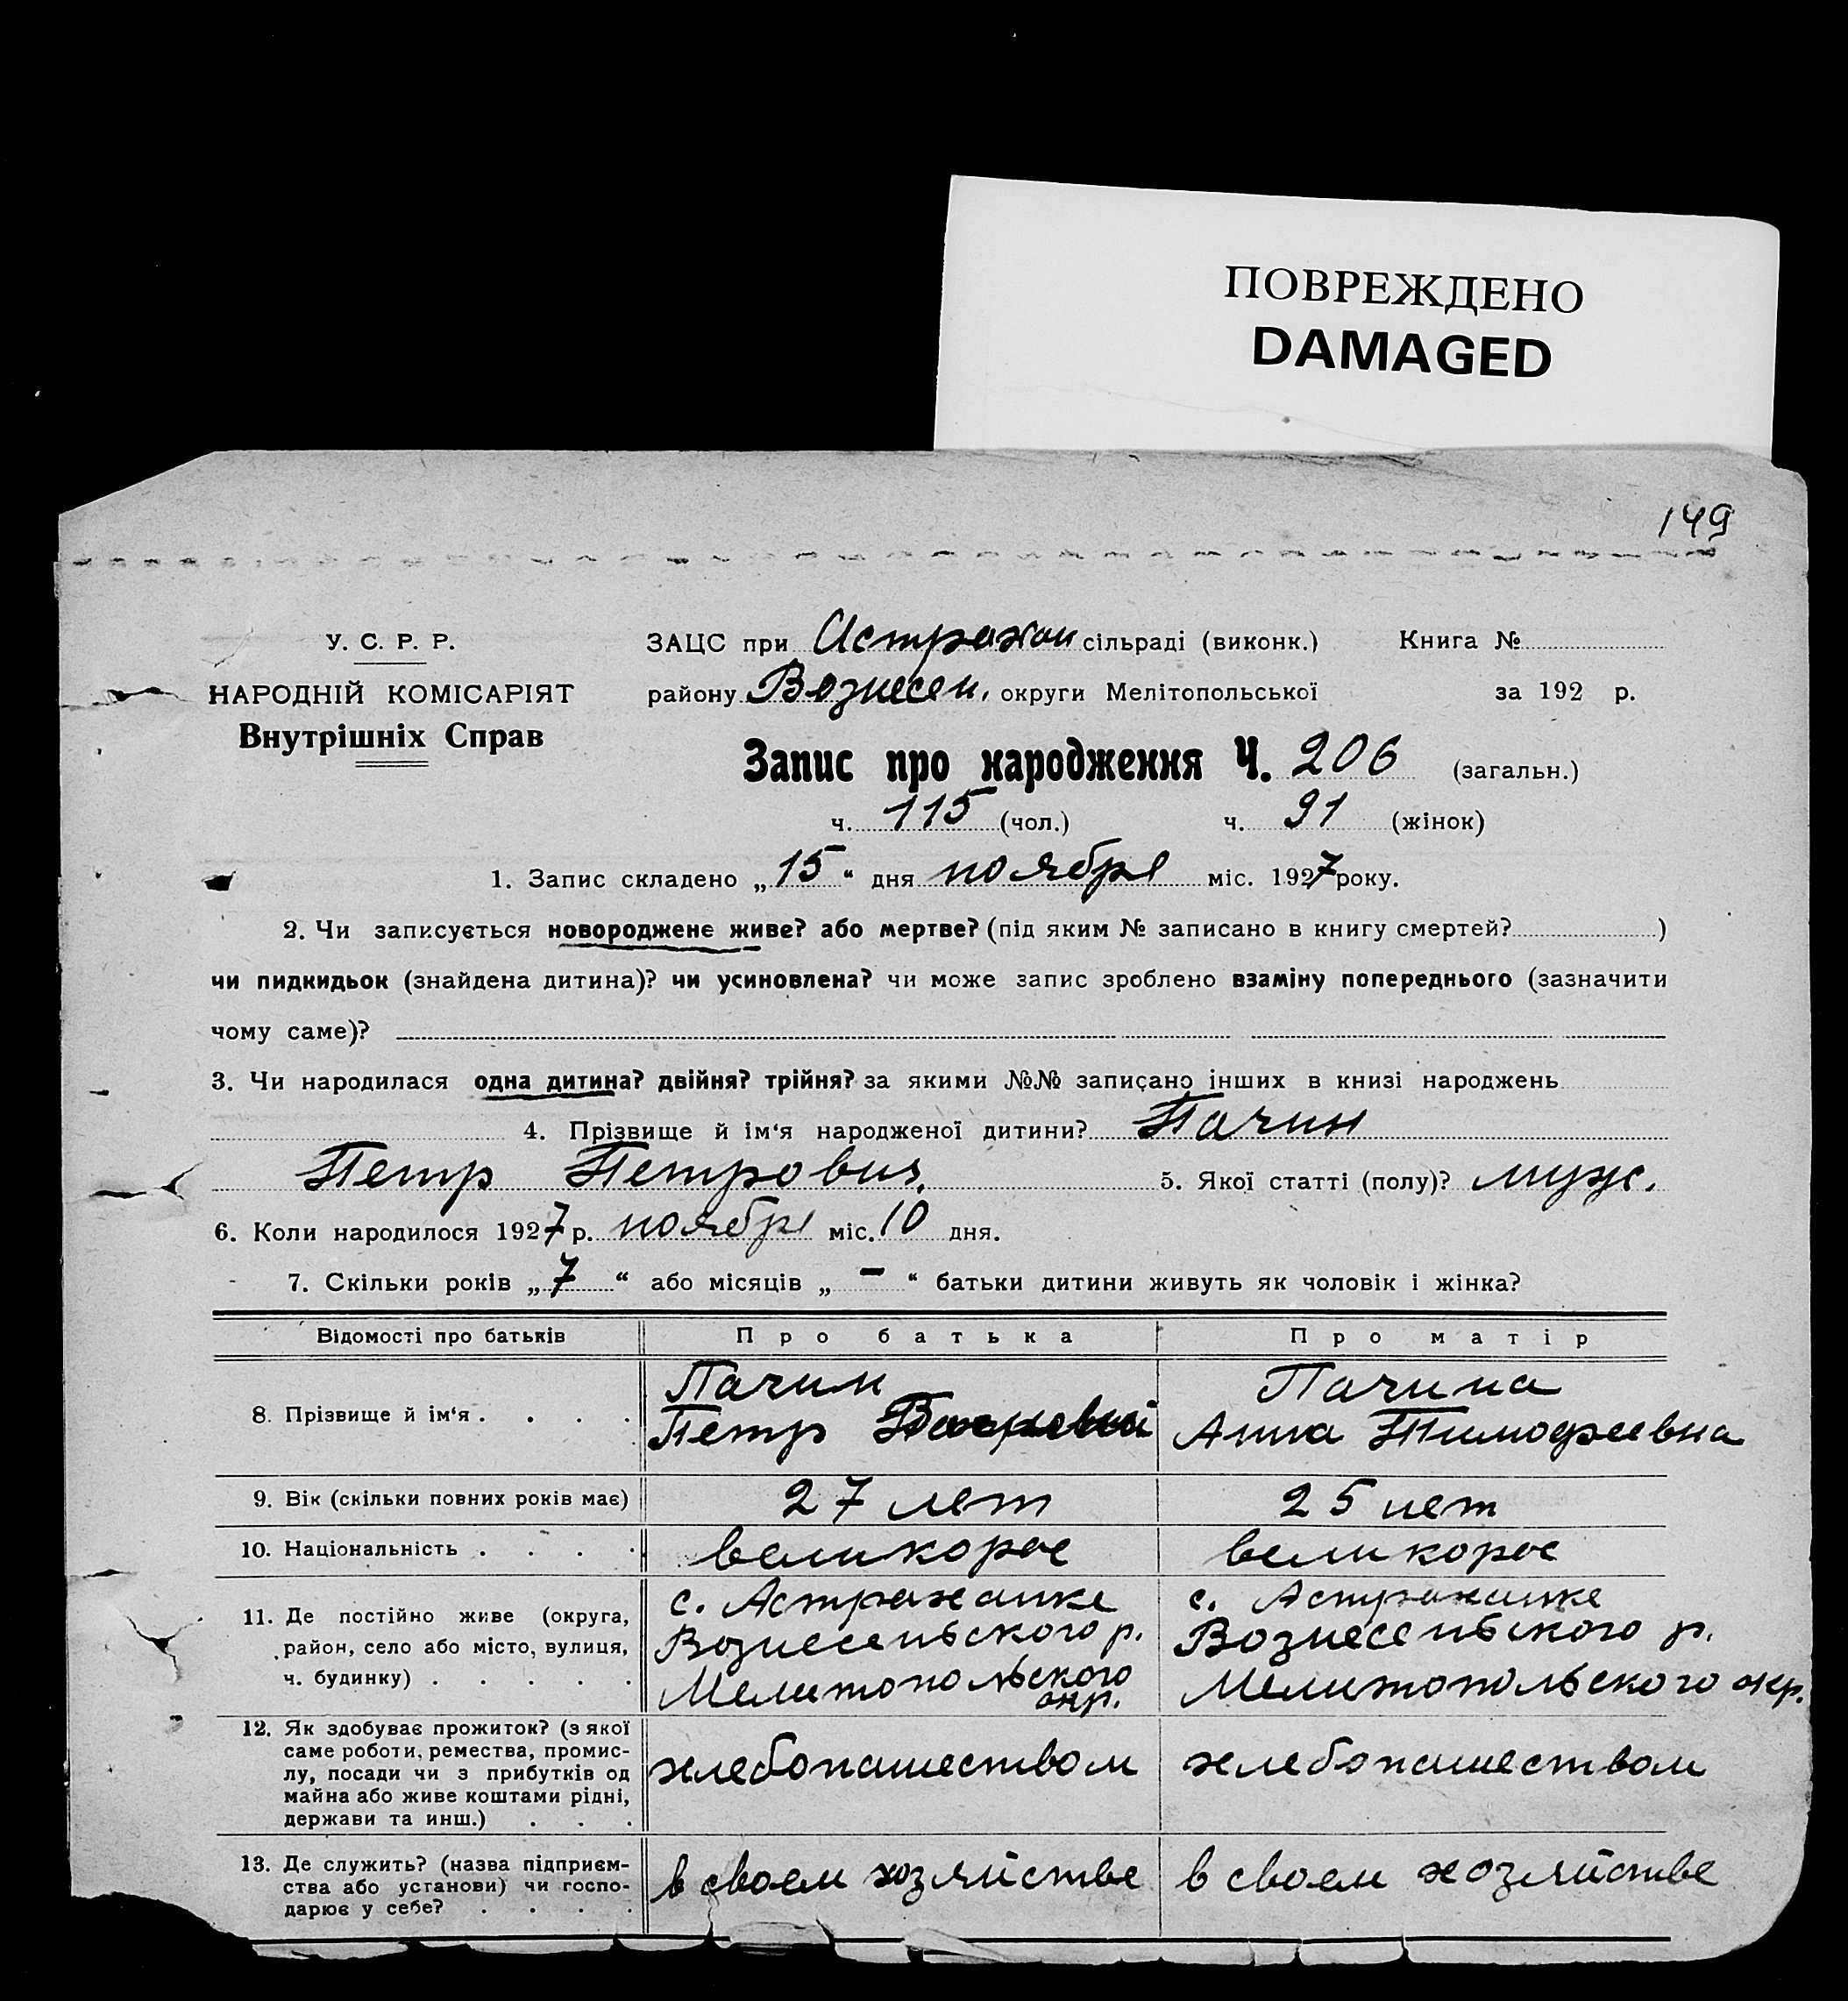 ПОВРЕЖДЕНО
DAMAGED
149
У. С. Р. Р.
НАРОДНІЙ КОМІСАРІЯТ
Внутрішніх Справ
ЗАЦС при Астрахан сільраді (виконк.) Книга №
району Вознесен. округи Мелітопольської за 192 р.
Запис про народження Ч. 206 (загальн.)
ч. 115 (чол.) ч. 91 (жінок)
1. Запис складено „15“ дня ноября міс. 1927 року.
2. Чи записується новороджене живе? або мертве? (під яким № записано в книгу смертей? )
чи пидкидьок (знайдена дитина)? чи усиновлена? чи може запис зроблено взаміну попереднього (зазначити
чому саме)?
3. Чи народилася одна дитина? двійня? трійня? за якими №№ записано інших в книзі народжень
4. Прізвище й ім‘я народженої дитини? Пачин
Петр Петрович. 5. Якої статті (полу)? муж.
6. Коли народилося 1927 р. ноября міс. 10 дня.
7. Скільки років „7“ або місяців „–“ батьки дитини живуть як чоловік і жінка?
Відомості про батьків Про батька Про матір
8. Прізвище й ім‘я . . . .
Пачин
Петр
Пачина
Анна Тимофеевна
9. Вік (скільки повних років має) 27 лет 25 лет
10. Національність . . . . великорос великорос
11. Де постійно живе (округа,
район, село або місто, вулиця,
ч. будинку) . . . . .
с. Астраханке
Вознесеньского р.
Мелитопольского
окр.
с. Астраханке
Вознесеньского р.
Мелитопольского окр.
12. Як здобуває прожиток? (з якої
саме роботи, ремества, промис-
лу, посади чи з прибутків од
майна або живе коштами рідні,
держави та инш.) . . .
хлебопашеством
хлебопашеством
13. Де служить? (назва підприєм-
ства або установи) чи госпо-
дарює у себе? . . . .
в своем хозяйстве
в своем хозяйстве